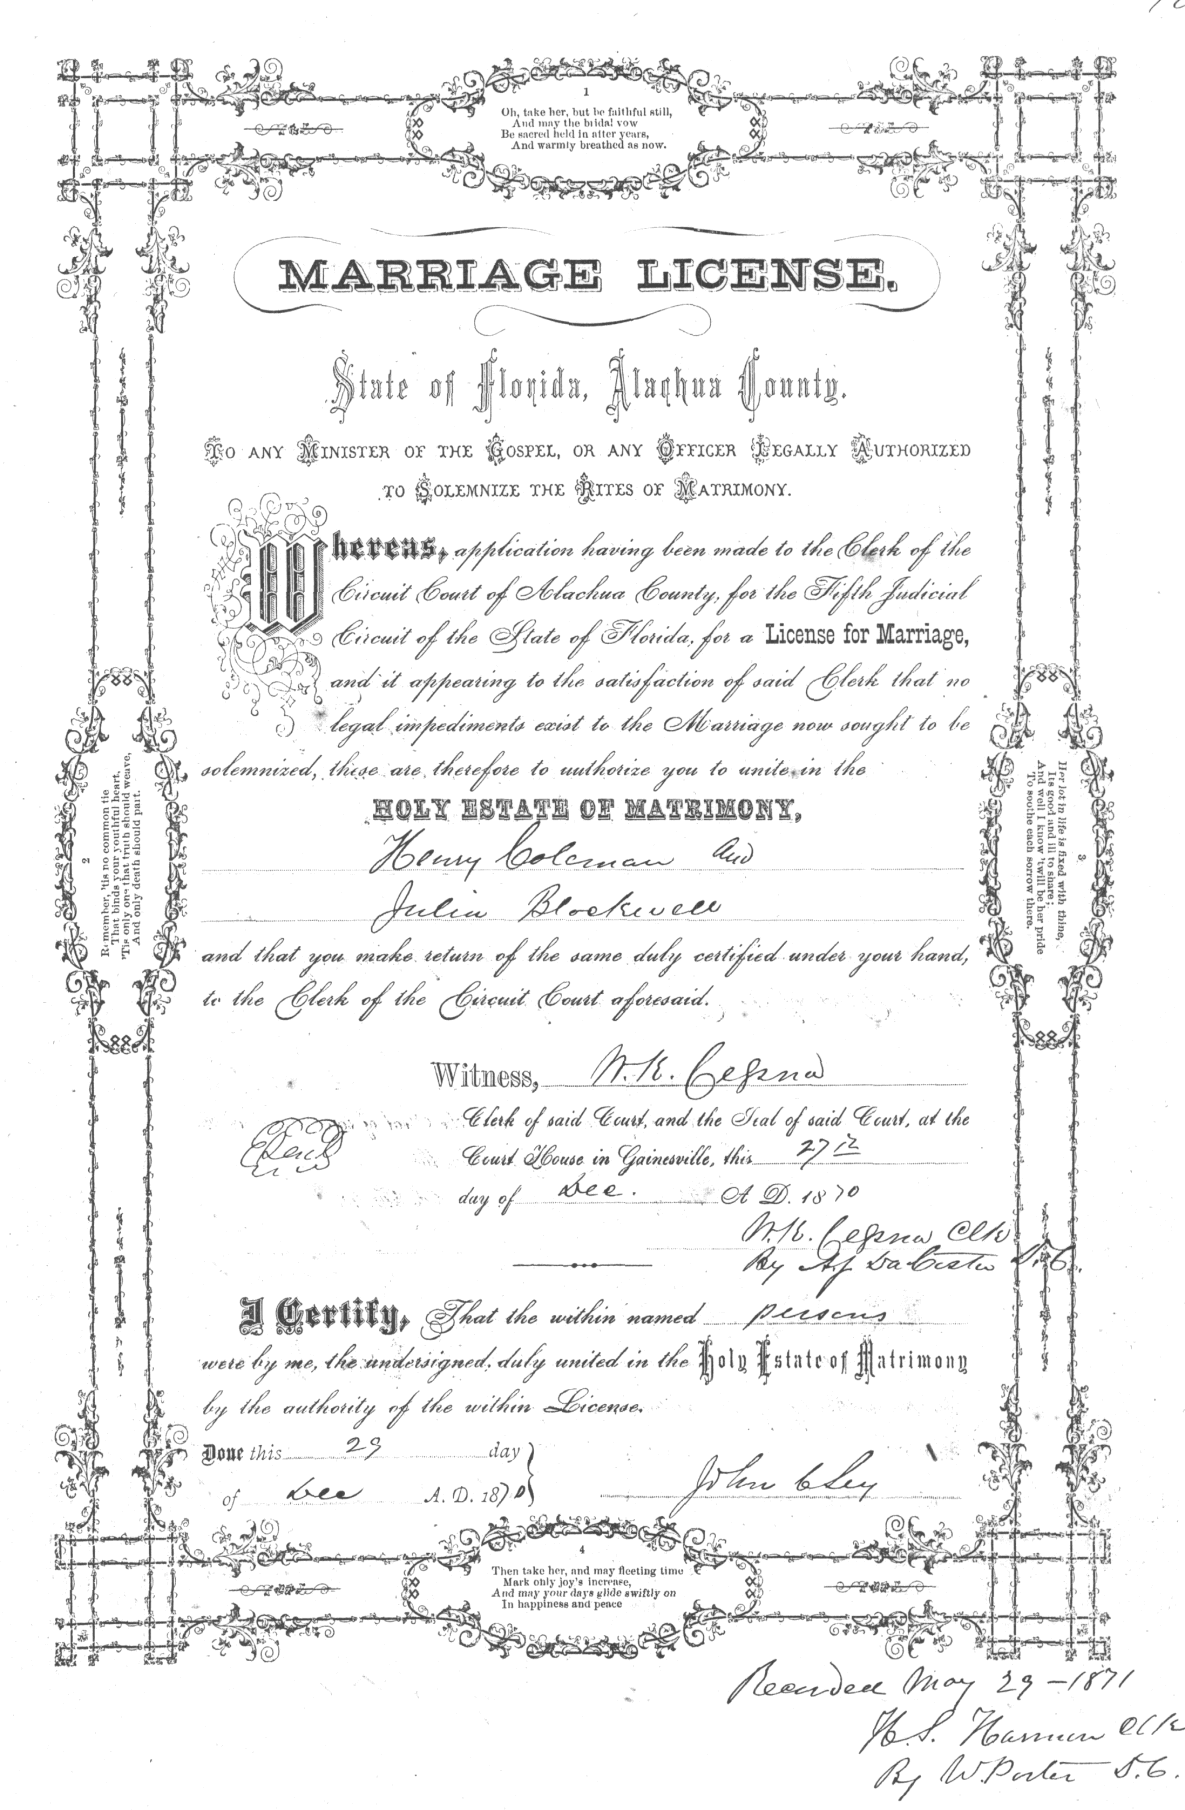 1
Oh, take her, but be faithful still,
And may the bridal vow
Be sacred held in after years,
And warmly breathed as now.
MARRIAGE LICENSE.
State of Florida, Alachua County.
TO ANY MINISTER OF THE GOSPEL, OR ANY OFFICER LEGALLY AUTHORIZED
TO SOLEMNIZE THE RITES OF MATRIMONY.
Whereas, application having been made to the Clerk of the
Circuit Court of Alachua County, for the Fifth Judicial
Circuit of the State of Florida, for a License for Marriage,
and it appearing to the satisfaction of said Clerk that no
legal impediments exist to the Marriage now sought to be
solemnized, these are therefore to authorize you to unite in the
HOLY ESTATE OF MATRIMONY,
Henry Coleman and
Julia Blackwell
and that you make return of the same duly certified under your hand,
to the Clerk of the Circuit Court aforesaid.
Witness, W. K. Cessna
Clerk of said Court, and the Seal of said Court, at the
Seal
Court House in Gainesville, this 27th
day of Dec. A D. 1870
W. K. Cessna Clk
By D. C.
I Certify, That the within named persons
were by me, the undersigned, duly united in the Holy Estate of Matrimony
by the authority of the within License.
Done this 29 day
of Dec A. D. 1870
John C Ley
2
Remember, 'tis no common tie
That binds your youthful heart,
'Tis only one that truth should weave,
And only death should part.
3
Her lot in life is fixed with thine,
Its good and ill to share;
And well I know 'twill be her pride
To soothe each sorrow there.
4
Then take her, and may fleeting time
Mark only joy's increase,
And may your days glide swiftly on
In happiness and peace
Recorded May 29 - 1871
H. S. Harmon Clk
By W. Porter D. C.